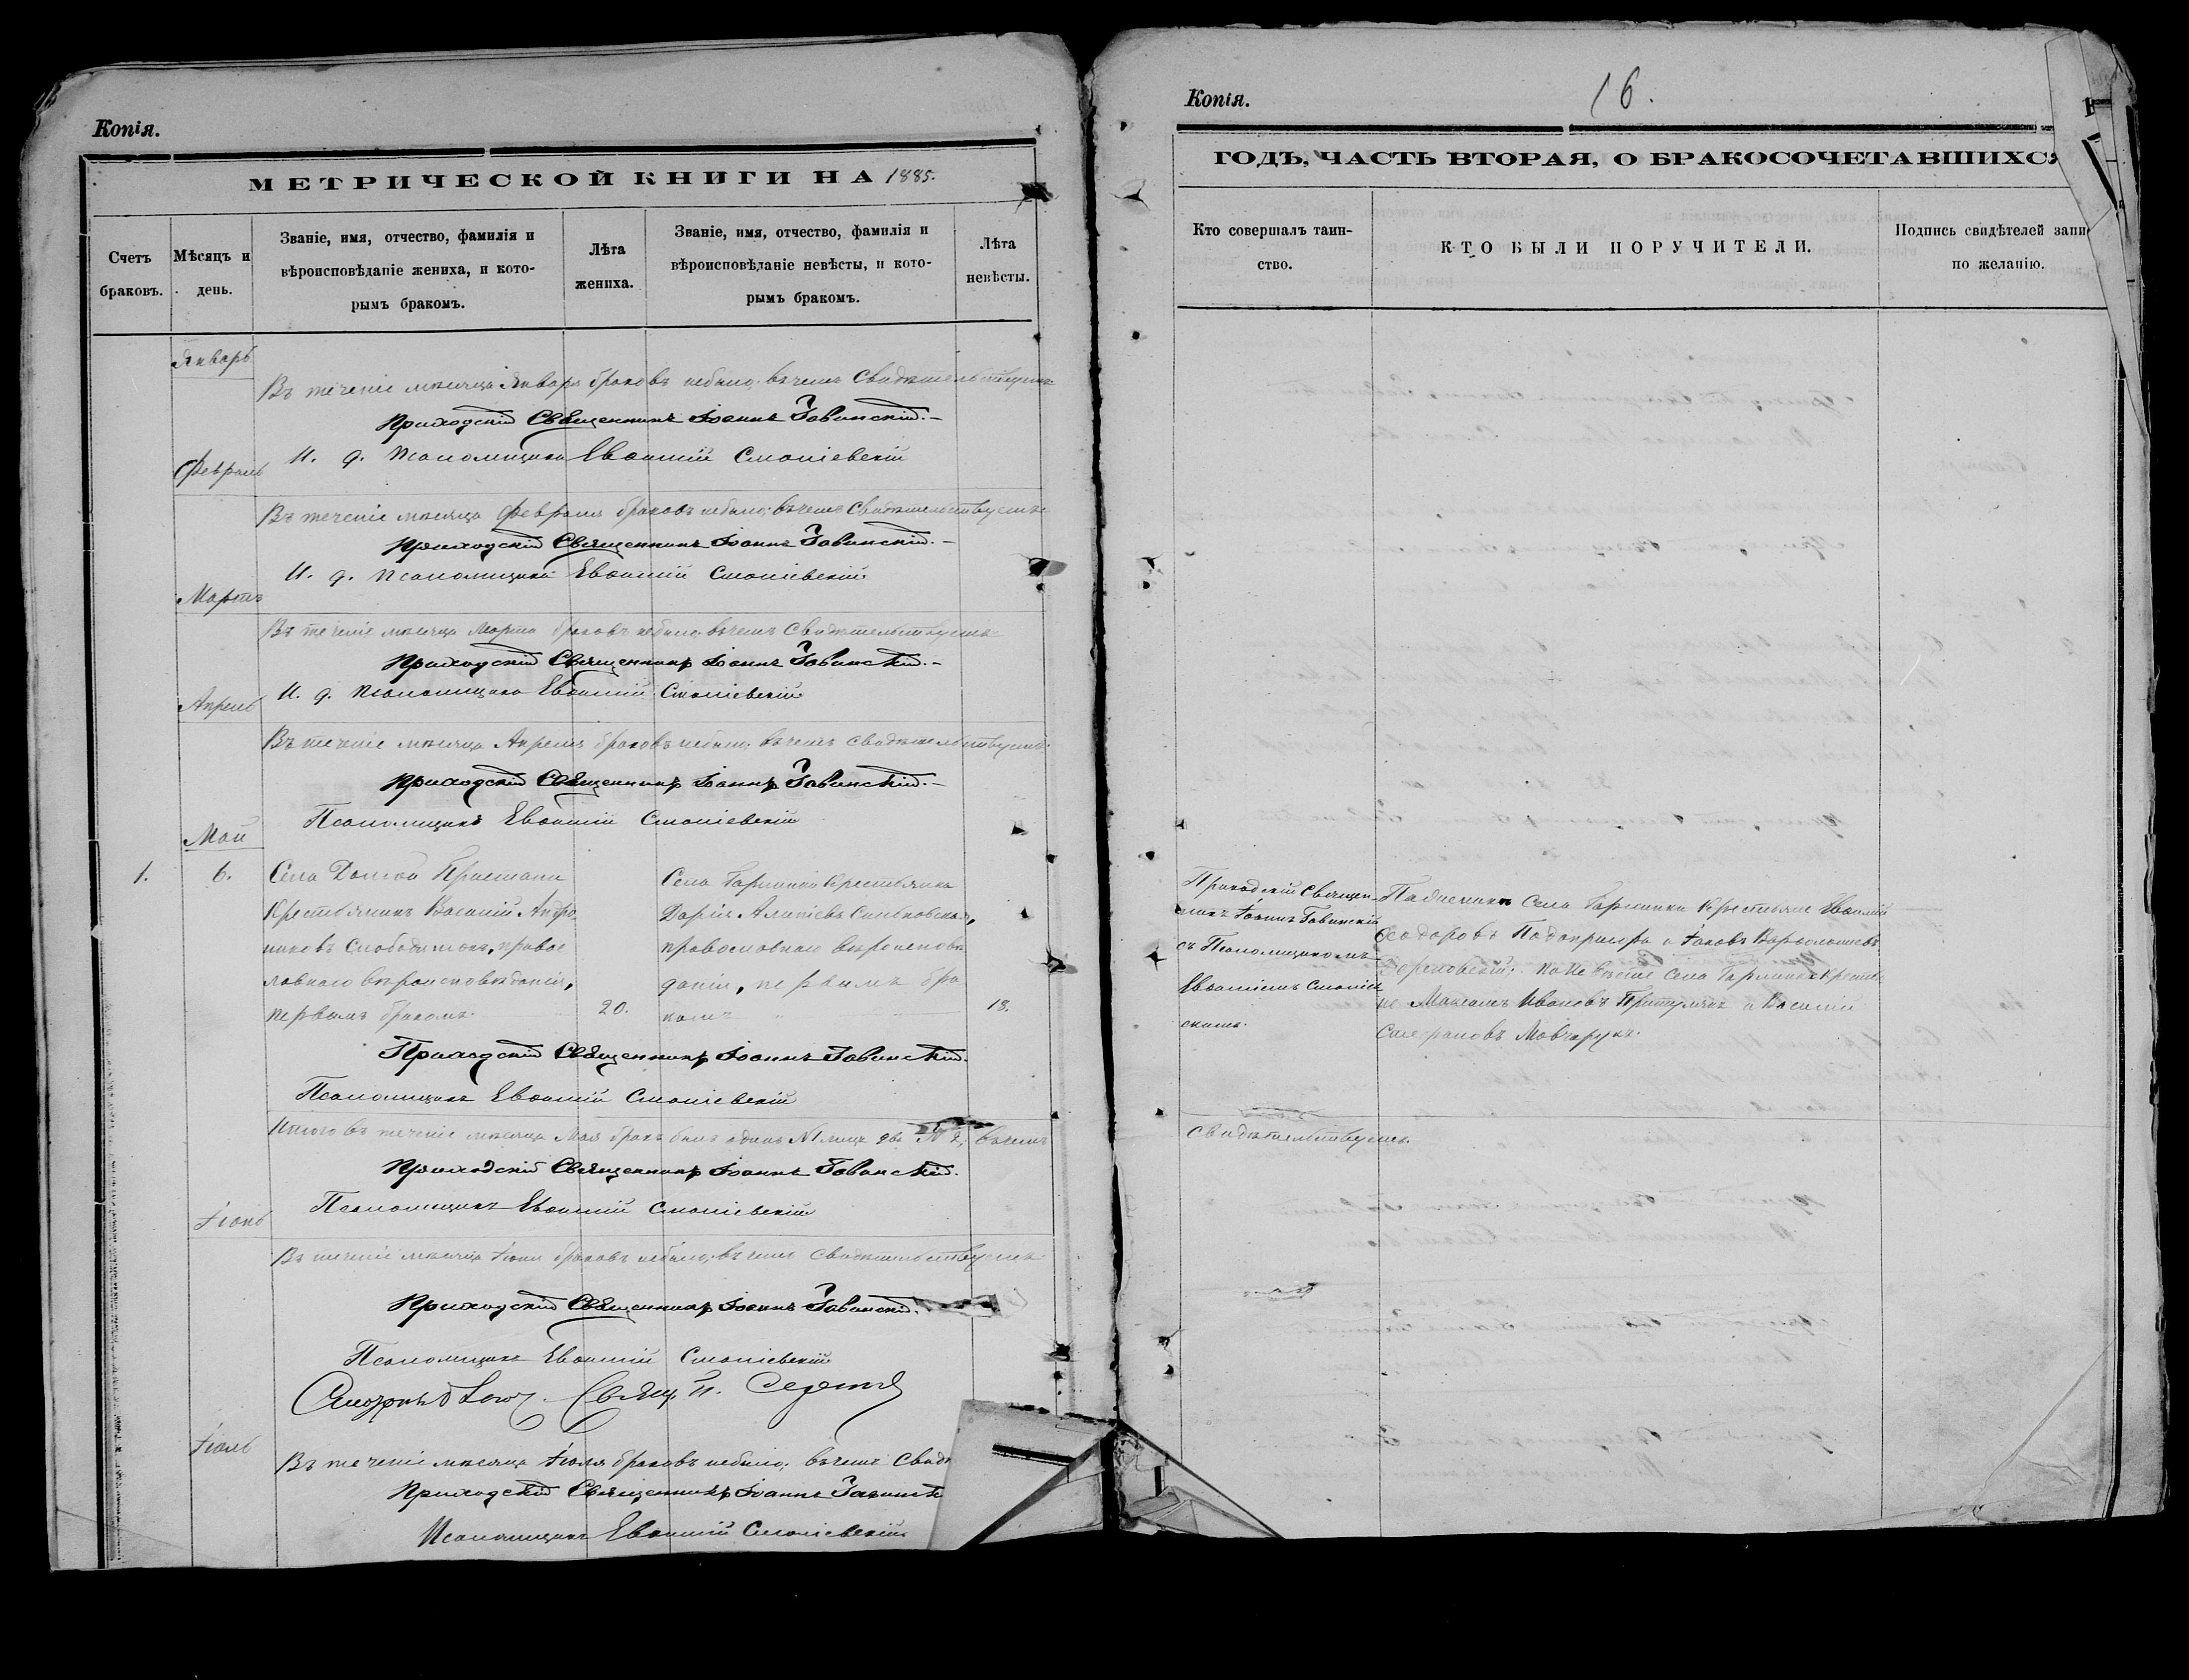 Копія.
МЕТРИЧЕСКОЙ КНИГИ НА 1885.
Счетъ браковъ.
Мѣсяцъ и день.
Званіе, имя, отчество, фамилія и вѣроисповѣданіе жениха, и которымъ бракомъ.
Лѣта жениха.
Званіе, имя, отчество, фамилія и вѣроисповѣданіе невѣсты, и которымъ бракомъ.
Лѣта невѣсты.
Январь
Въ теченіе мѣсяца Января браковъ небыло; въчемъ свидѣтельствуемъ
Приходскій Священникъ Іоаннъ Гавинскій.
И. д. Псаломщика Евѳимій Смолієвскій
Февраль
Въ теченіе мѣсяца Февраля браковъ небыло; въчемъ свидѣтельствуемъ
Приходскій Священникъ Іоаннъ Гавинскій.
И. д. Псаломщика Евѳимій Смолієвскій
Мартъ
Въ теченіе мѣсяца Марта браковъ небыло; въчемъ свидѣтельствуемъ
Приходскій Священникъ Іоаннъ Гавинскій.
И. д. Псаломщика Евѳимій Смолієвскій
Апрель
Въ теченіе мѣсяца Апреля браковъ небыло; въчемъ свидѣтельствуемъ
Приходскій Священникъ Іоаннъ Гавинскій.
Псаломщикъ Евѳимій Смолієвскій
Май
1. 6.
Села Долгой Пристани
крестьянинъ Василій Андро
никовъ Слободянюкъ, правос
лавнаго вѣроисповѣданія,
первымъ бракомъ
20.
Села Гармакы крестьянка
Дарія
православнаго вѣроисповѣ
данія, первымъ бра
комъ
18.
Приходскій Священникъ Іоаннъ Гавинскій.
Псаломщикъ Евѳимій Смолієвскій
Итого въ теченіе мѣсяца Мая бракъ былъ одинъ №1 лицъ два №2, въчемъ
Приходскій Священникъ Іоаннъ Гавинскій.
Псаломщикъ Евѳимій Смолієвскій
Іюнь
Въ теченіе мѣсяца Іюня браковъ небыло; въчемъ свидѣтельствуемъ
Приходскій Священникъ Іоаннъ Гавинскій.
Псаломщикъ Евѳимій Смолієвскій
Іюль
Въ теченіе мѣсяца Іюля браковъ небыло; въчемъ
Приходскій Священникъ Іоаннъ
Псаломщикъ Евѳимій Смолієвскій
Копія.
16.
ГОДЪ, ЧАСТЬ ВТОРАЯ, О БРАКОСОЧЕТАВШИХСЯ
Кто совершалъ таинство.
КТО БЫЛИ ПОРУЧИТЕЛИ.
Подпись свидѣтелей запи
по желанію.
Приходскій Священ-
никъ Іоаннъ Гавинскій
съ Псаломщикомъ
Евѳиміемъ Смоліев
скимъ.
села крестьяне Евѳимій
Ѳеодоровъ Подопригора и Іаковъ
по невѣсте села крестья
не Максимъ Ивановъ и Василій
Мовчарукъ.
свидѣтельствуемъ.